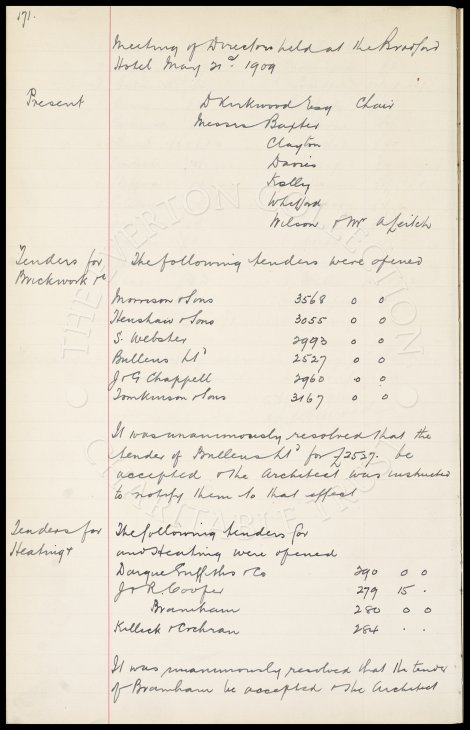 171.
Meeting of Directors held at the Bradford
Hotel May 21st 1909
Present D Kirkwood Esq Chair
Messrs Baxter
Clayton
Davies
Kelly
Whitford
Wilson & Mr A Leitch
Tenders for The following tenders were opened
Brickwork &c
Morrison & Sons 3568 0 0
Henshaw & Sons 3055 0 0
S. Webster 2993 0 0
Bullens Ltd 2527 0 0
J & G Chappell 2960 0 0
Tomkinson & Sons 3167 0 0
It was unanimously resolved that the
tender of Bullens Ltd for £2527. be
accepted & the Architect was instructed
to notify them to that effect
Tenders for The following tenders for
Heating &
and Heating were opened
Dargue Griffiths & Co 290 0 0
J & R. Cooper 279 15 .
Bramham 280 0 0
Killick & Cochran 284 . .
It was unanimously resolved that the tender
of Bramham be accepted & the Architect
THE EVERTON COLLECTION
CHARITABLE TRUST